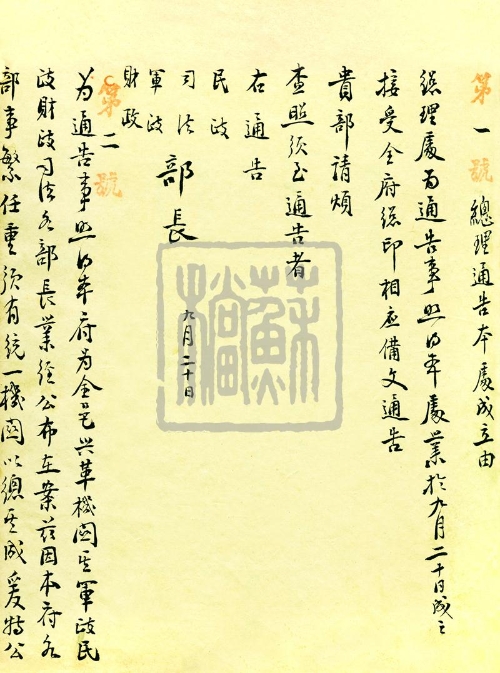 第一號 總理通告本處成立由
總理處為通告事照得本處業於九月二十日成立
接受全府總印相應備文通告
貴部請煩
查照須至通告者
右通告
民政
司法 部長
軍政
財政
九月二十日
第二號
为通告事照得本府为全邑兴革機關其軍政民
政財政司法各部長業經公布在案茲因本府各
部事繁任重須有統一機關以總其成爰特公
蘇